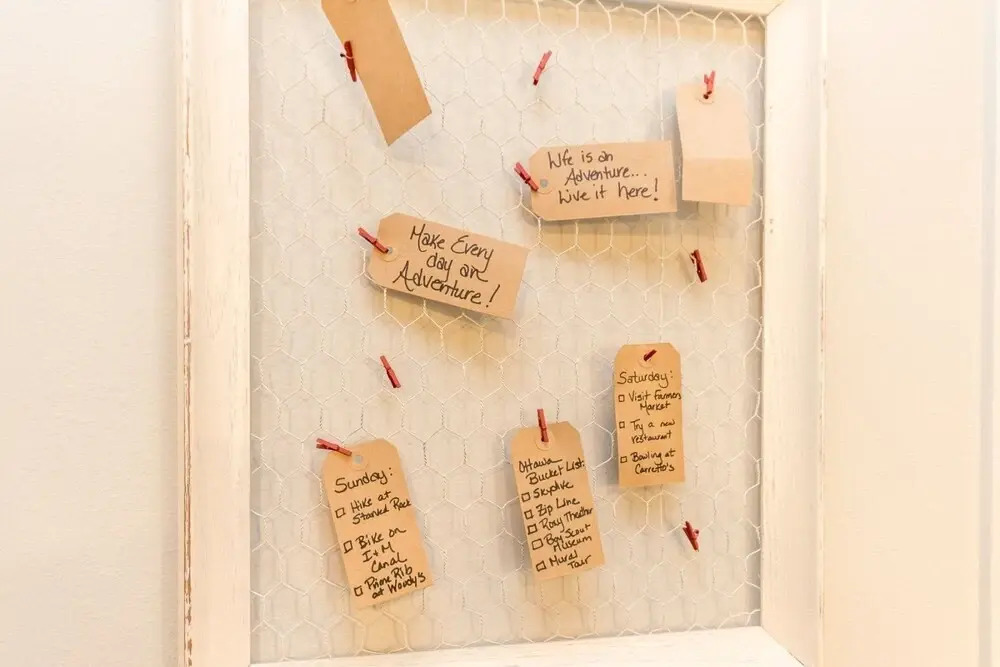 Life is an
Adventure...
Live it here!
Make Every
day an
Adventure!
Saturday:
Visit Farmers
Market
Try a new
restaurant
Bowling at
Carretto's
Sunday:
Hike at
Starved Rock
Bike on
I+M
Canal
Prime Rib
at Woody's
Ottawa
Bucket List:
Skydive
Zip Line
Roxy Theater
Boy Scout
Museum
Mural
Tour